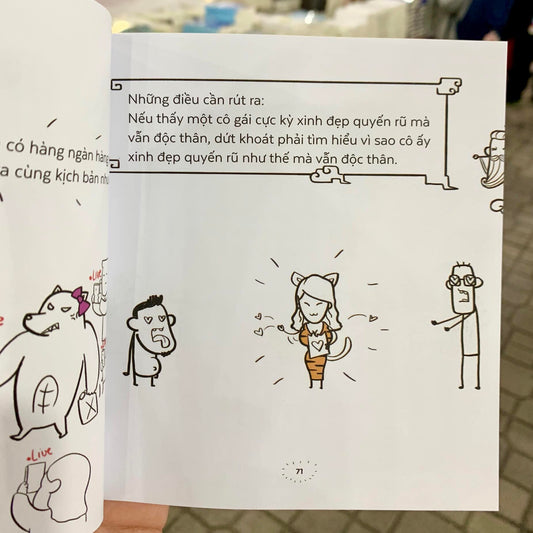 có hàng ngàn hàng
a cùng kịch bản như
Live
Live
Những điều cần rút ra:
Nếu thấy một cô gái cực kỳ xinh đẹp quyến rũ mà
vẫn độc thân, dứt khoát phải tìm hiểu vì sao cô ấy
xinh đẹp quyến rũ như thế mà vẫn độc thân.
71